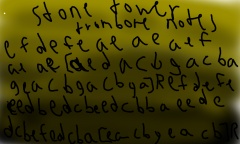 stone tower
trombone notes
efdefe ae ae aef
ae ae [aed acbgacba
geacbgacbga]Refdefe
eedbedcbeedcbbaeede
dcbefedcba[ea cbgeacb]R